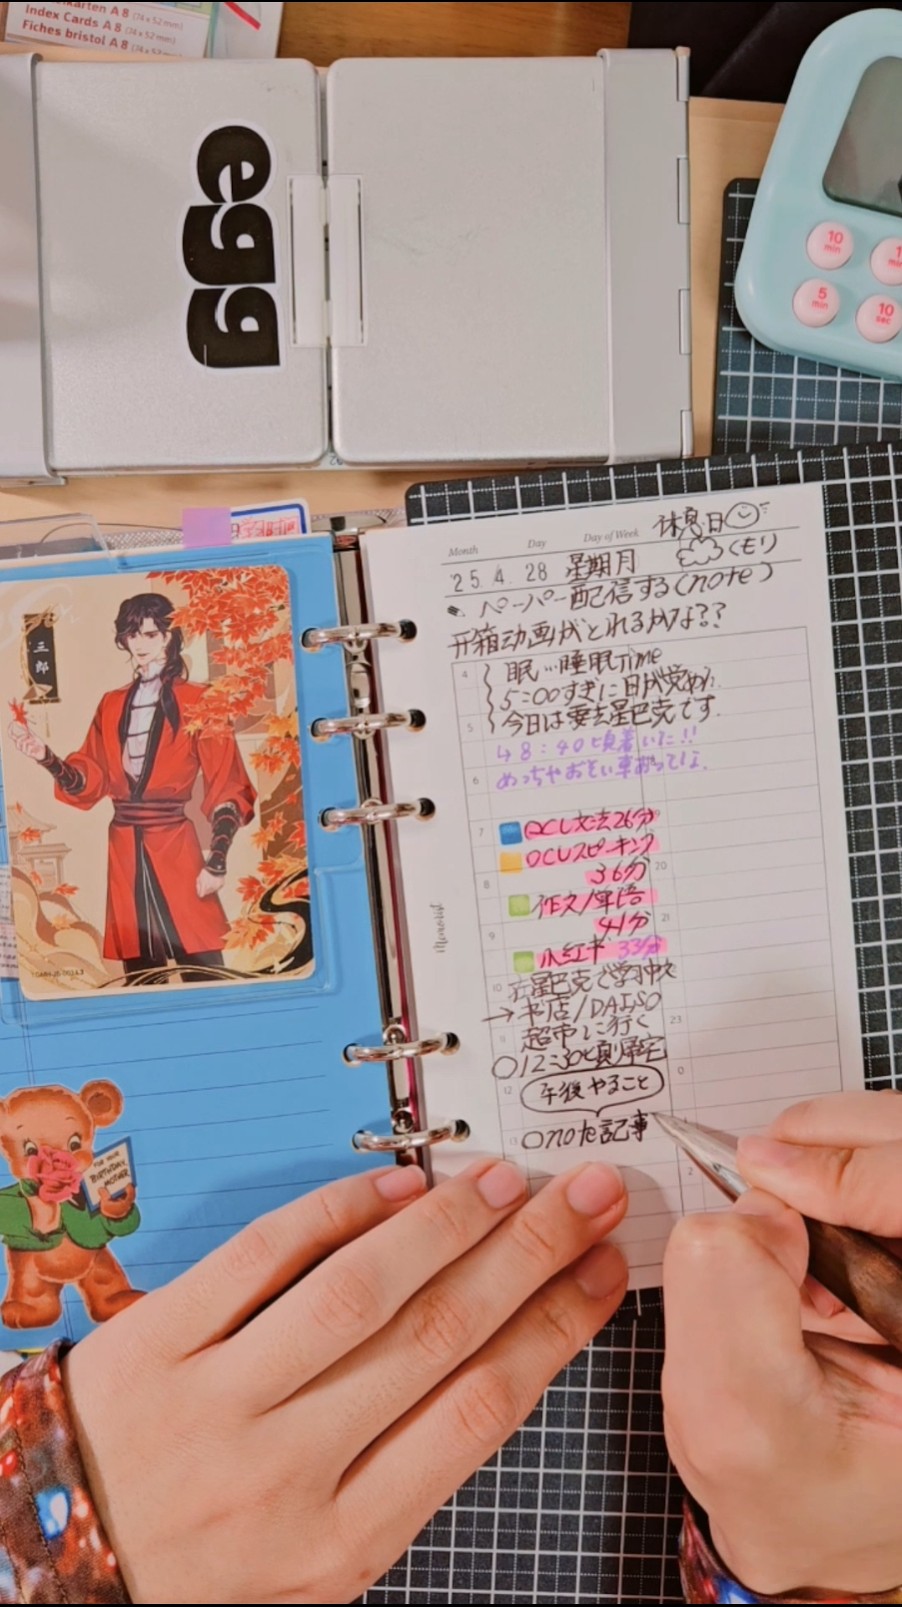 Index Cards A 8 (74 x 52 mm)
Fiches bristol A 8 (74 x 52 mm)
egg
10 min
5 min
10 sec
三郎
FOR YOUR
BIRTHDAY,
MOTHER
休息日
Month Day Day of Week
くもり
'25.4.28 星期月
ペーパー配信する(note)
开箱动画がとれるかな??
4 眠…睡眠Time
5:00すぎに目が覚めた
5 今日は要去星巴克です.
↳8:40頃着いた!!
6 めっちゃおそい車おってしな.
7 文法26分
スピーキング
8 36分 20
作文/単語
9 41分 21
小红书 33分
10 在星巴克で学习中文
→书店/DAISO
超市に行く 23
○12:30頃帰宅
12 午後やること 0
13 ○note記事
2
Memorist